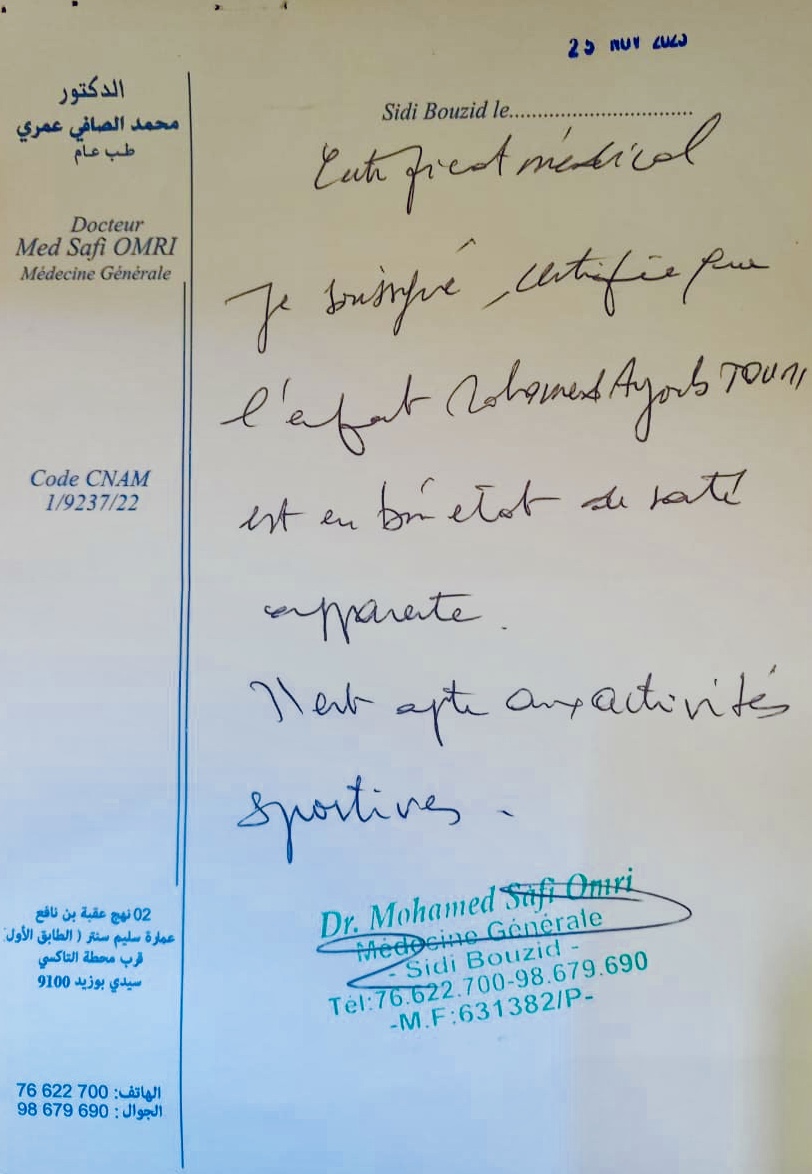 25 NOV 2025
الدكتور
محمد الصافي عمري
طب عام
Docteur
Med Safi OMRI
Médecine Générale
Code CNAM
1/9237/22
02 نهج عقبة بن نافع
عمارة سليم سنتر ( الطابق الأول
قرب محطة التاكسي
سيدي بوزيد 9100
الهاتف: 700 622 76
الجوال : 690 679 98
Sidi Bouzid le................................
Certificat médical
Je soussigné, certifie que
l'enfant Mohamed Ayoub TOUMI
est en bon état de santé
apparente.
Il est apte aux activités
sportives.
Dr. Mohamed Safi Omri
Médecine Générale
- Sidi Bouzid -
Tél:76.622.700-98.679.690
-M.F:631382/P-